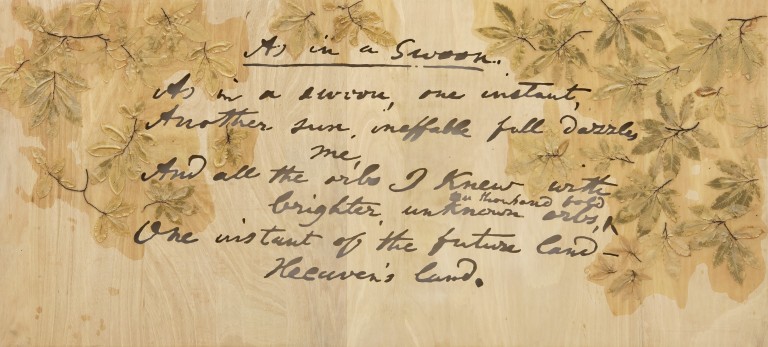 As in a Swoon.
As in a swoon, one instant,
Another sun, ineffable full dazzles
me,
And all the orbs I Knew with
thousand
brighter, unknown orbs,
One instant of the future land –
Heaven's land.